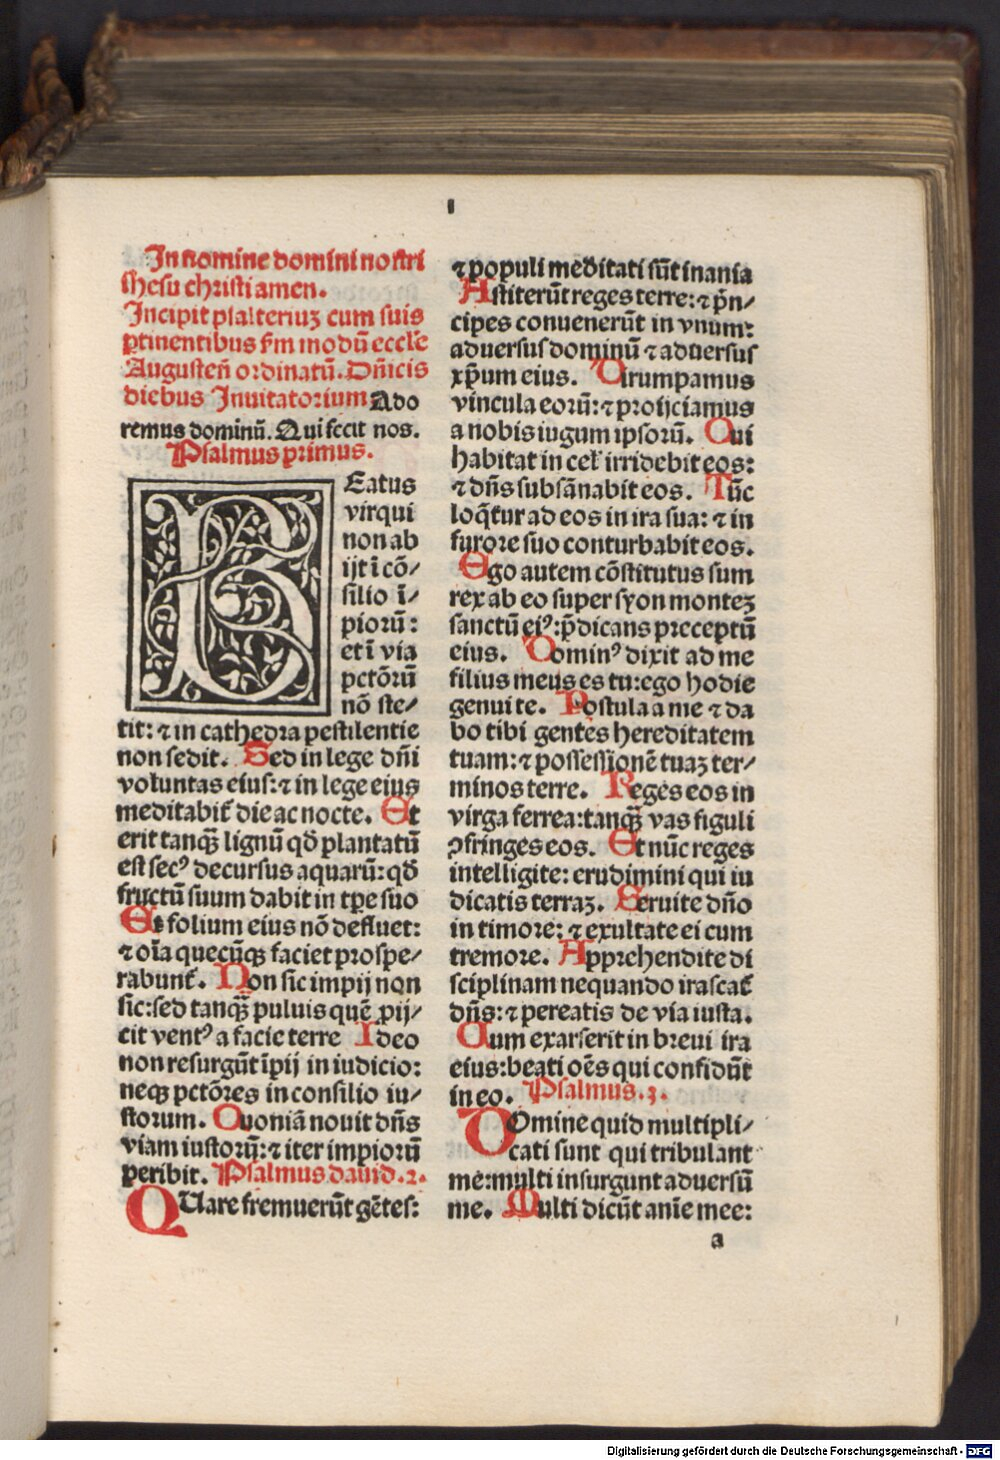 1
In nomine domini nostri
Jhesu christi amen.
Incipit psalteriuz cum suis
ptinentibus fm modū eccl'e
Augusteñ ordinatū. Dñicis
diebus Inuitatorium Ado
remus dominū. Qui fecit nos.
Psalmus primus.
BEatus
vir qui
non ab
ijt ī cō⸗
silio ī⸗
piorū:
et ī via
pctōrū
nō ste⸗
tit: ⁊ in cathedra pestilentie
non sedit. Sed in lege dñi
voluntas eius: ⁊ in lege eius
meditabit᷑ die ac nocte. Et
erit tanqꝫ̄ lignū qd̄ plantatū
est secꝰ decursus aquarū: qd̄
fructū suum dabit in tpe suo
Et folium eius nō defluet:
⁊ oīa quecūqꝫ faciet prospe⸗
rabunt᷑. Non sic impij non
sic: sed tanqꝫ̄ puluis quē ꝓij⸗
cit ventꝰ a facie terre Ideo
non resurgūt īpij in iudicio:
neqꝫ pctōres in consilio iu⸗
storum. Quoniā nouit dñs
viam iustorū: ⁊ iter impiorū
peribit. Psalmus dauid .2.
QUare fremuerūt gētes:
⁊ populi meditati sūt inania
Astiterūt reges terre: ⁊ pn̄⸗
cipes conuenerūt in vnum:
aduersus dominū ⁊ aduersus
xp̄um eius. Dirumpamus
vincula eorū: ⁊ proijciamus
a nobis iugum ipsorū. Qui
habitat in cel' irridebit eos:
⁊ dñs subsānabit eos. Tūc
loq̄tur ad eos in ira sua: ⁊ in
furore suo conturbabit eos.
Ego autem cōstitutus sum
rex ab eo super syon monteꝫ
sanctū eiꝰ: p̄dicans preceptū
eius. Dominꝰ dixit ad me
filius meus es tu: ego hodie
genui te. Postula a me ⁊ da
bo tibi gentes hereditatem
tuam: ⁊ possessionē tuaꝫ ter⸗
minos terre. Reges eos in
virga ferrea: tanqꝫ̄ vas figuli
ꝯfringes eos. Et nūc reges
intelligite: erudimini qui iu
dicatis terraꝫ. Seruite dño
in timore: ⁊ exultate ei cum
tremore. Apprehendite di
sciplinam nequando irascat᷑
dñs: ⁊ pereatis de via iusta.
Cum exarserit in breui ira
eius: beati oēs qui confidūt
in eo. Psalmus .3.
DOmine quid multipli⸗
cati sunt qui tribulant
me: multi insurgunt aduersū
me. Multi dicūt anīe mee:
a
Digitalisierung gefördert durch die Deutsche Forschungsgemeinschaft - DFG